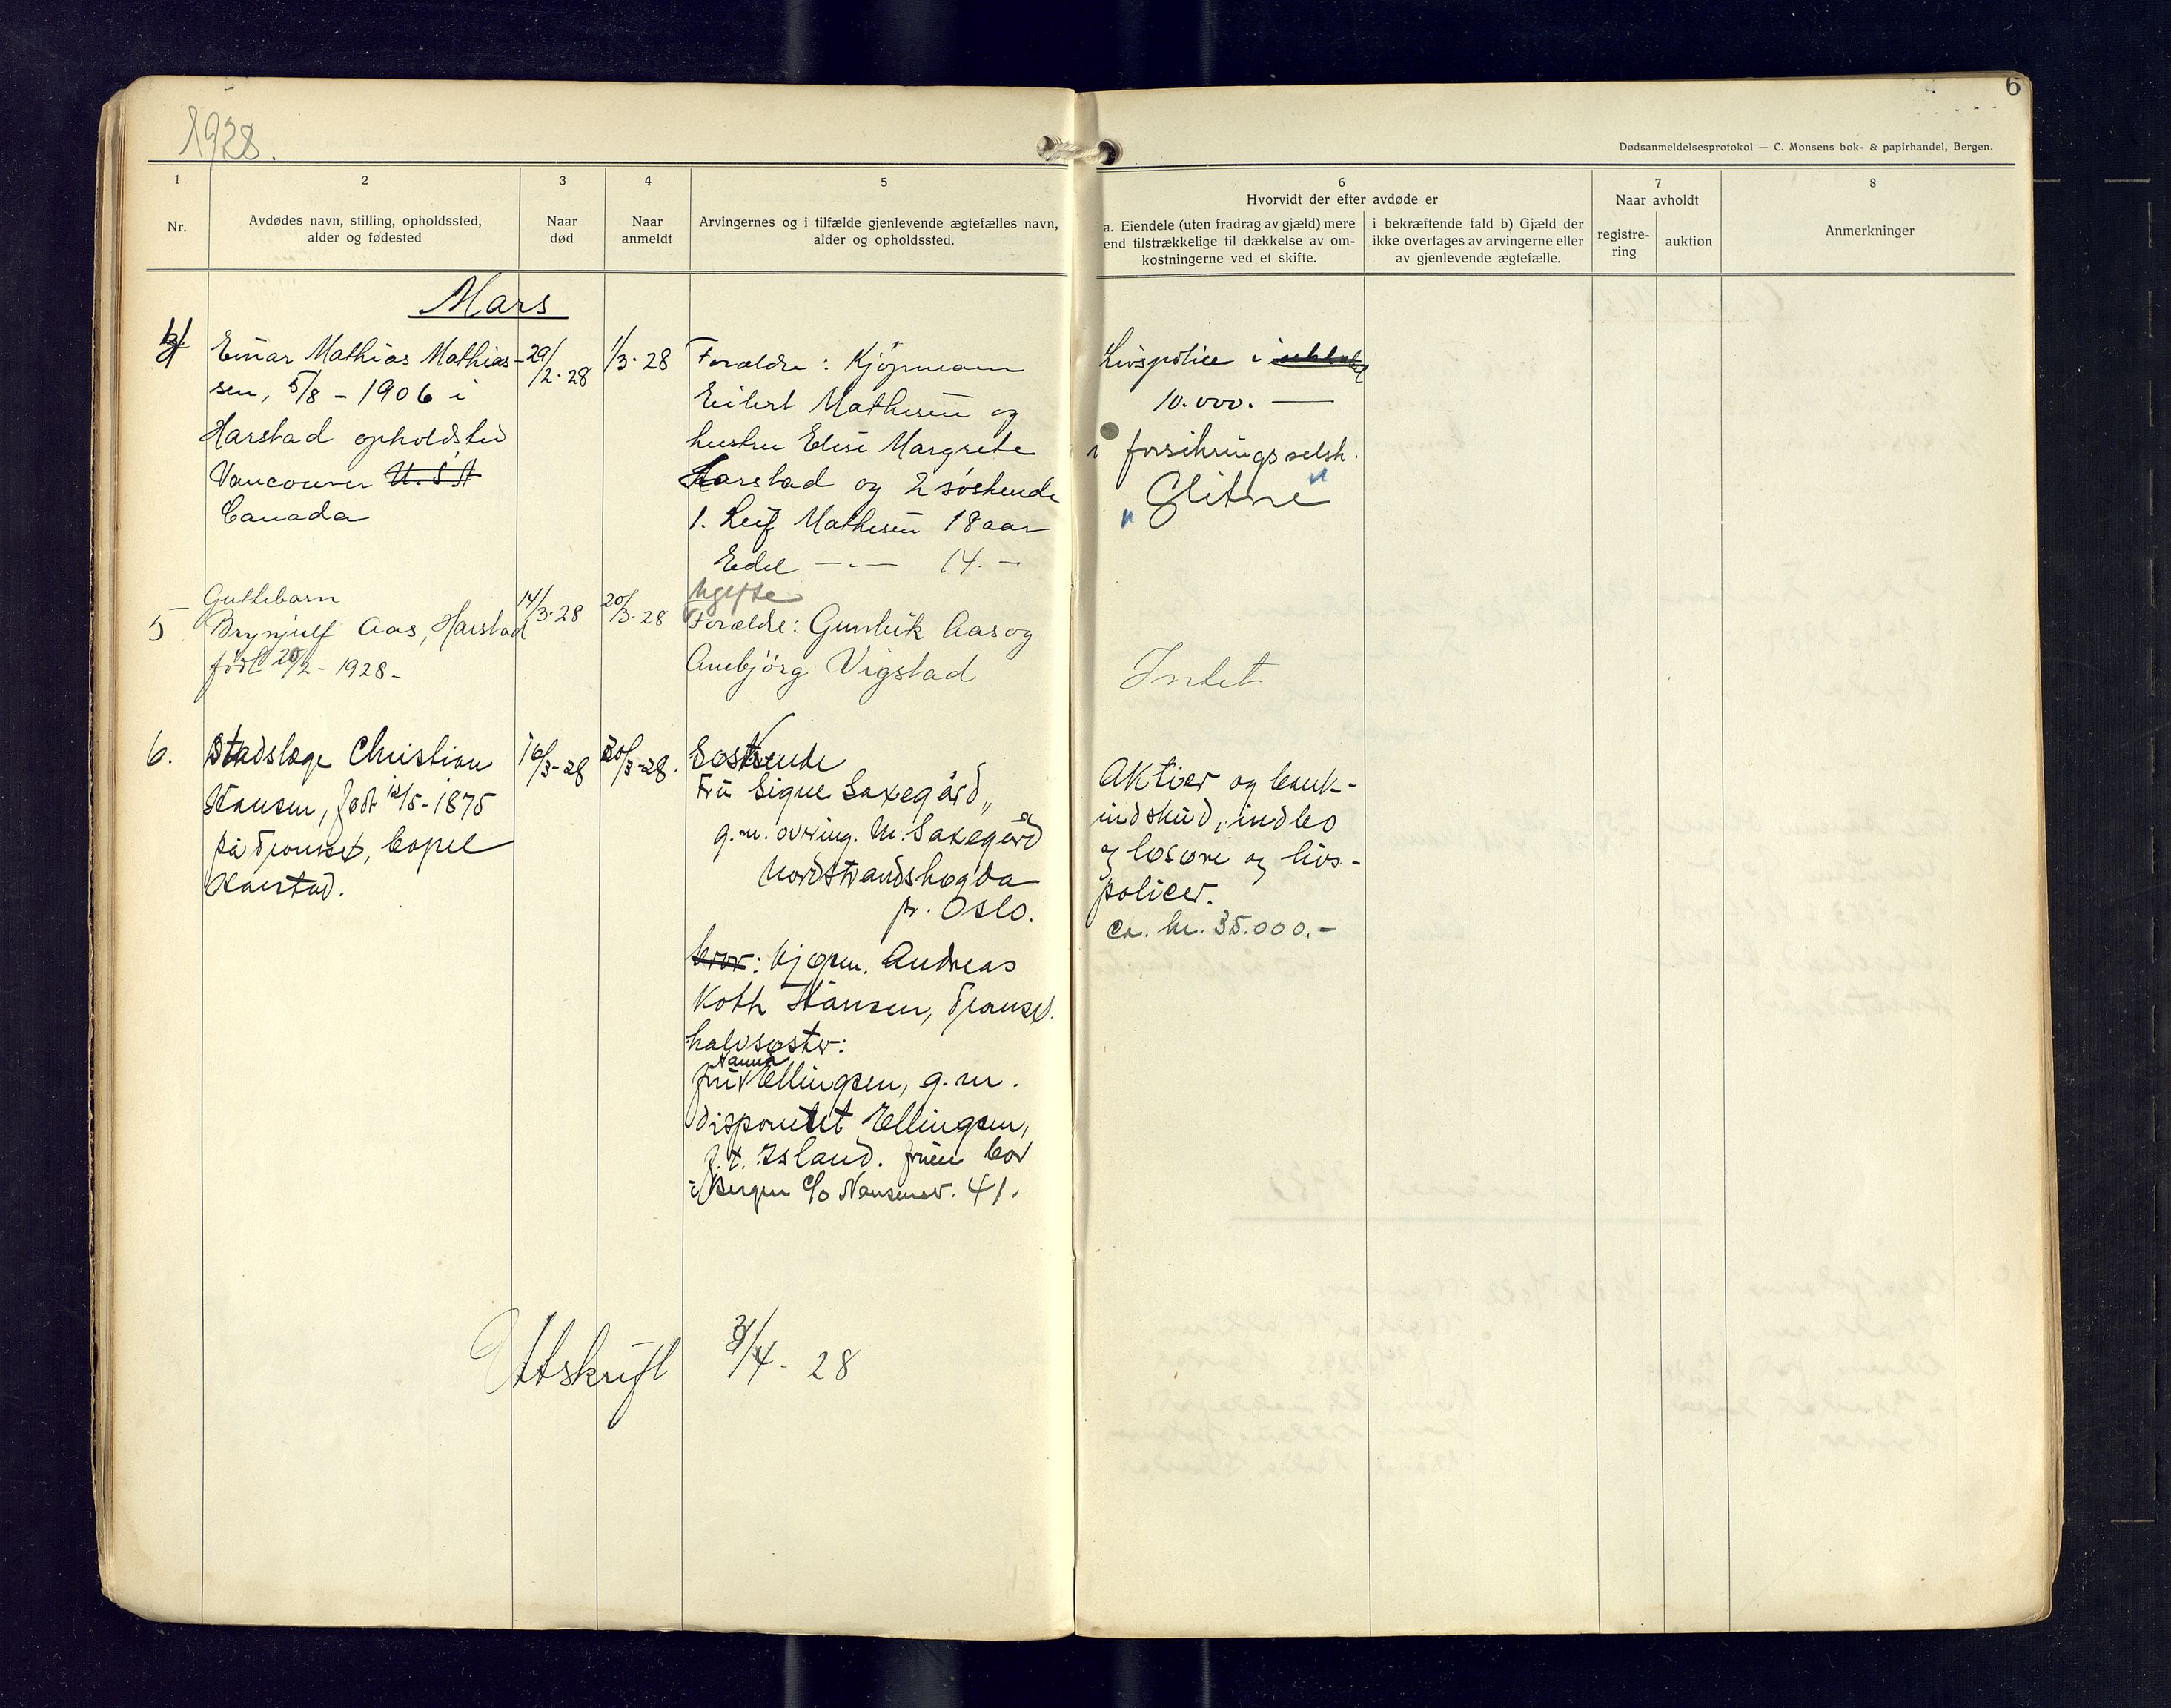 1928.
6
Dødsanmeldelsesprotokol — C. Monsens bok- & papirhandel, Bergen.
1
Nr.
2
Avdødes navn, stilling, opholdssted,
alder og fødested
3
Naar
død
4
Naar
anmeldt
5
Arvingernes og i tilfælde gjenlevende ægtefælles navn,
alder og opholdssted.
6
Hvorvidt der efter avdøde er
a. Eiendele (uten fradrag av gjæld) mere
end tilstrækkelige til dækkelse av om-
kostningerne ved et skifte.
i bekræftende fald b) Gjæld der
ikke overtages av arvingerne eller
av gjenlevende ægtefælle.
7
Naar avholdt
registre-
ring
auktion
8
Anmerkninger
Mars
4
Einar Mathias Mathias-
sen, 5/8 - 1906 i
Harstad opholdsted
Vancouver U.S.A
Canada
29/2-28
1/3-28
Forældre: Kjøpmann
Eilert Mathisen og
hustru Elise Margrete
Harstad og 2 søskende
1. Leif Mathisen 18 aar
Edel —„— 14.—
ugifte
Livspolice i
10.000.—
i forsikringsselsk.
„Glitne"
5
Guttebarn
Brynjulf Aas, Harstad
født 20/2-1928-
14/3-28
20/3-28
Forældre: Gunleik Aas og
Annbjörg Vigstad
Intet
6.
Stadslæge Christian
Hansen, født 12/5-1875
på Tromsø, bopel
Harstad.
16/3-28
20/3-28.
Søskende
Fru Signe Saxegård,
g.m. overing. M. Saxegård
Nordstrandshøgda
pr. Oslo.
bror: kjøpm. Andreas
Koth Hansen, Tromsø.
halvsøster:
fru Hanna Ellingsen, g.m.
disponent Ellingsen,
p.t. Island. fruen bor
i Bergen c/o Nansensv. 41.
Aktier og bank-
indskud, indbo
og løsøre og livs-
policer.
ca. kr. 35.000.-
Utskrift 3/4-28